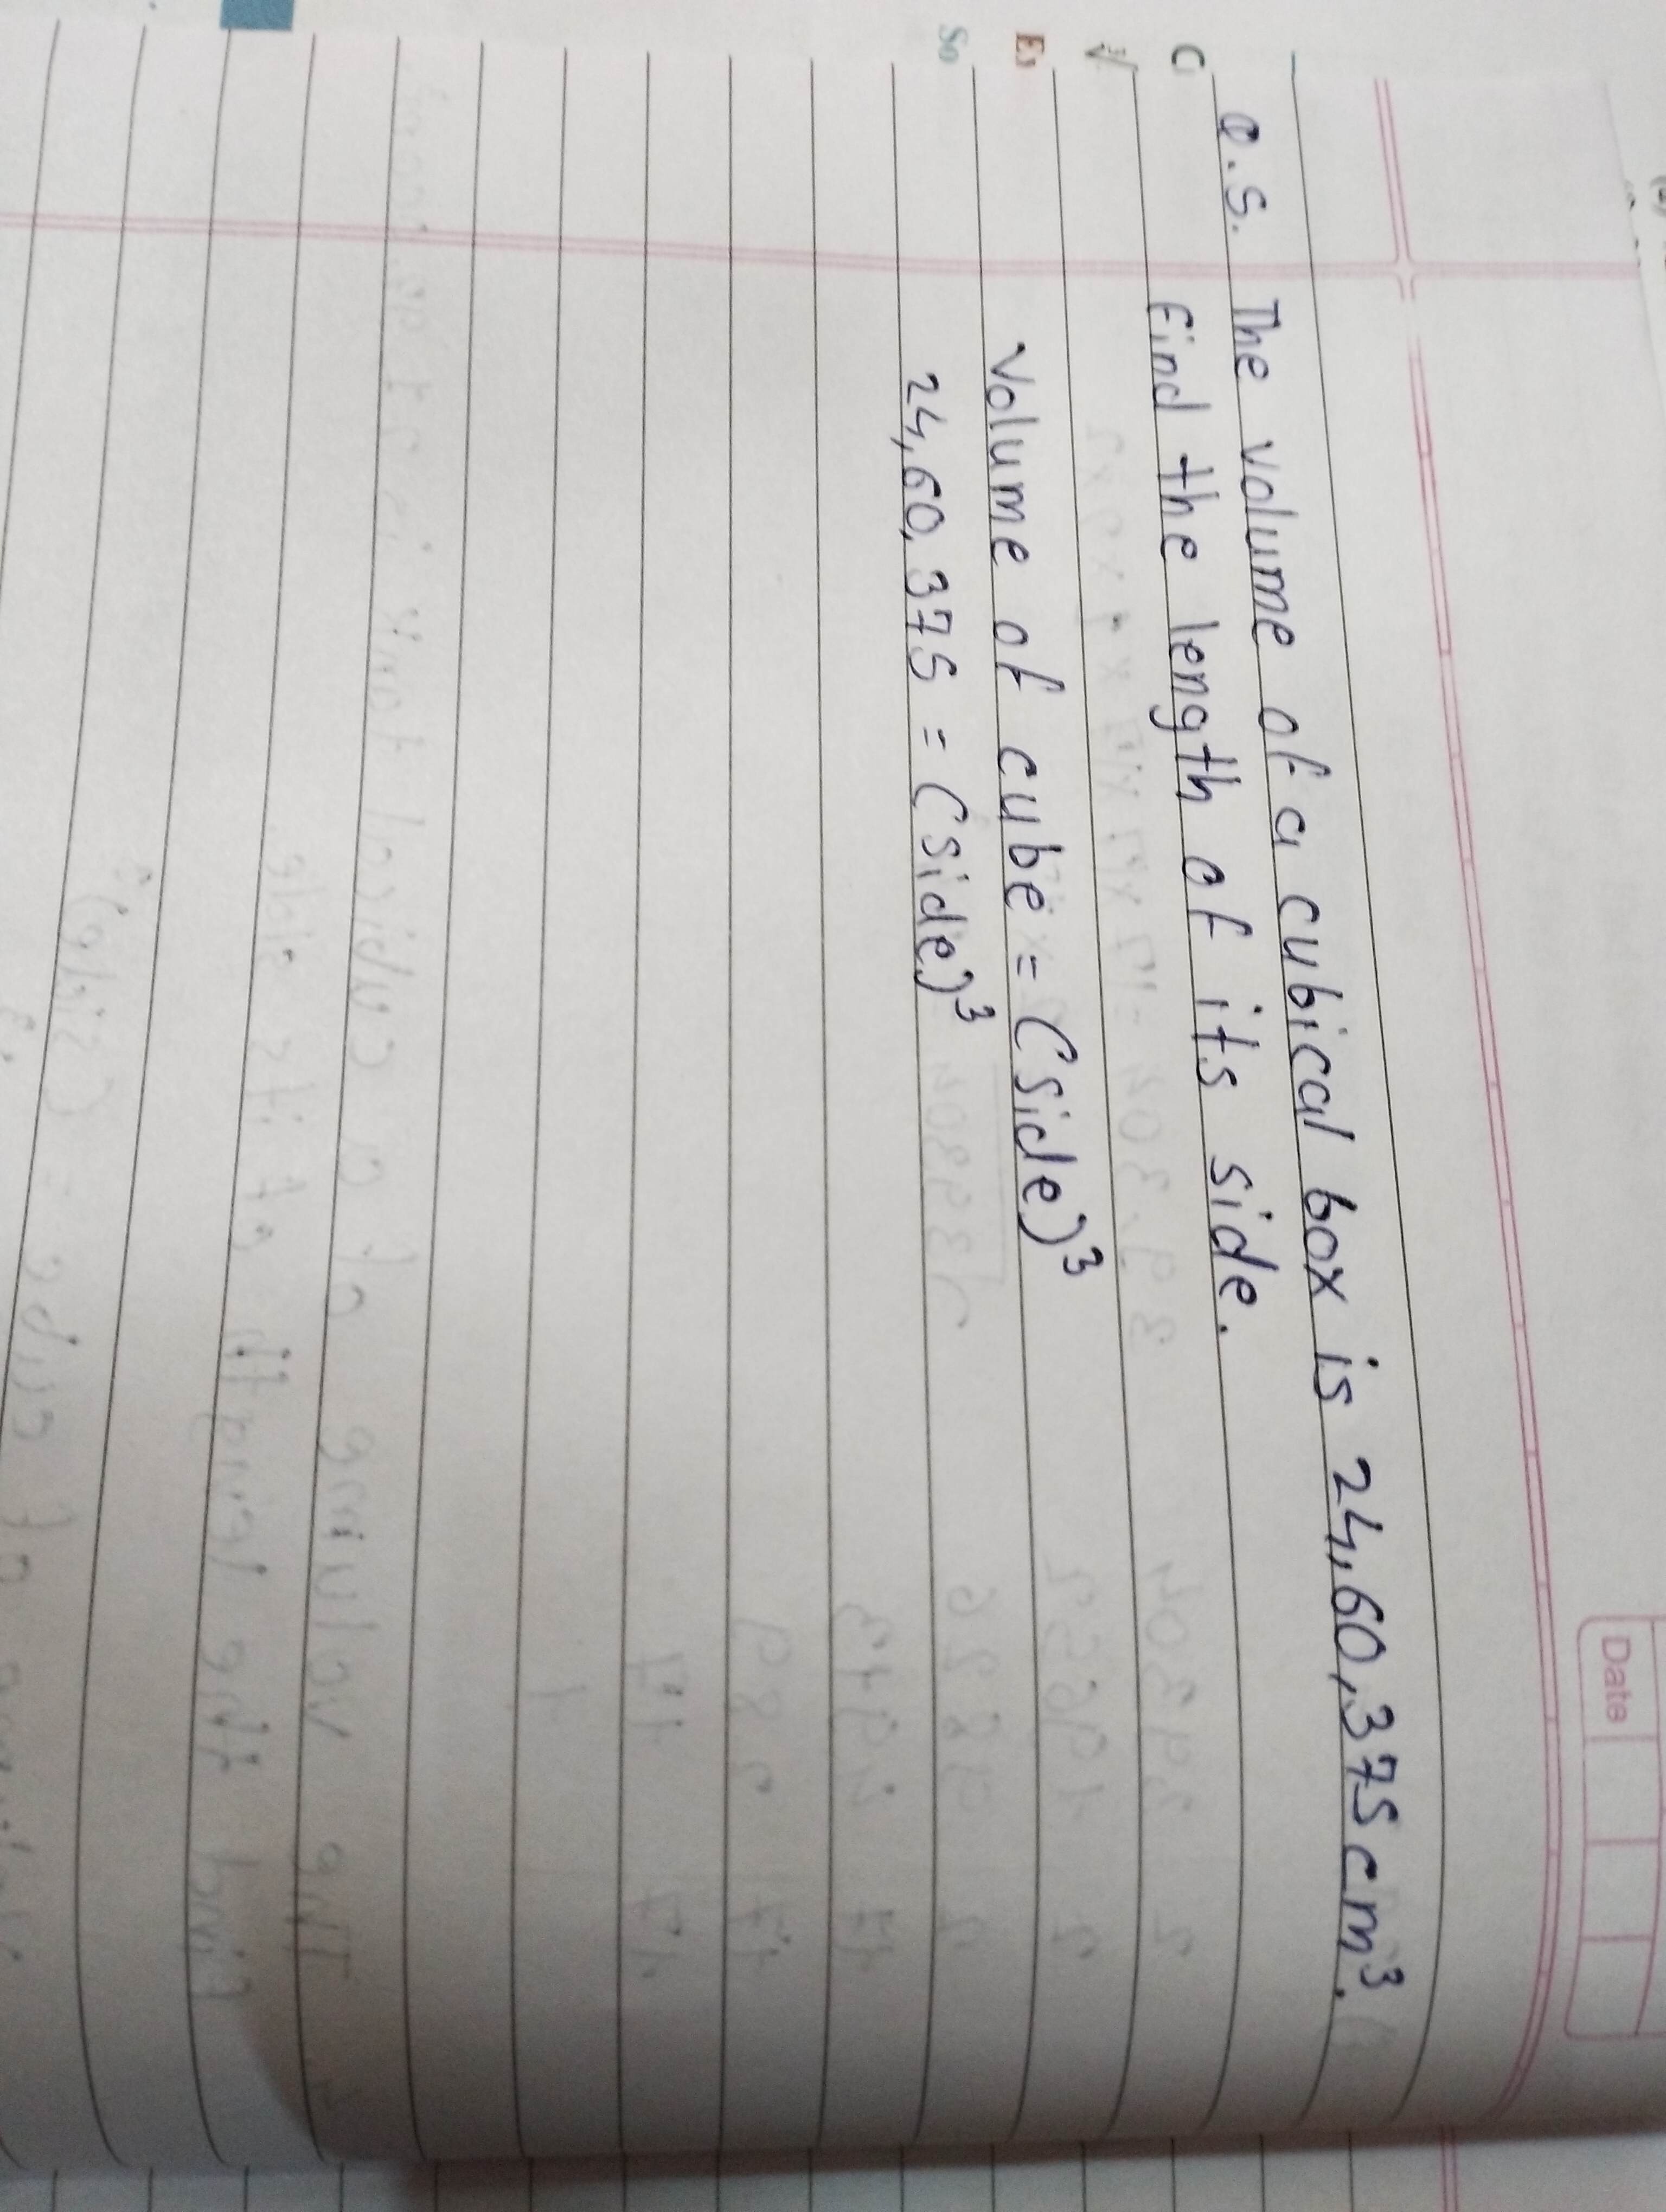 Date
Q.5. The volume of a cubical box is 24,60,375cm³.
Find the length of its side.
Volume of cube = (side)³
24,60,375 = (side)³